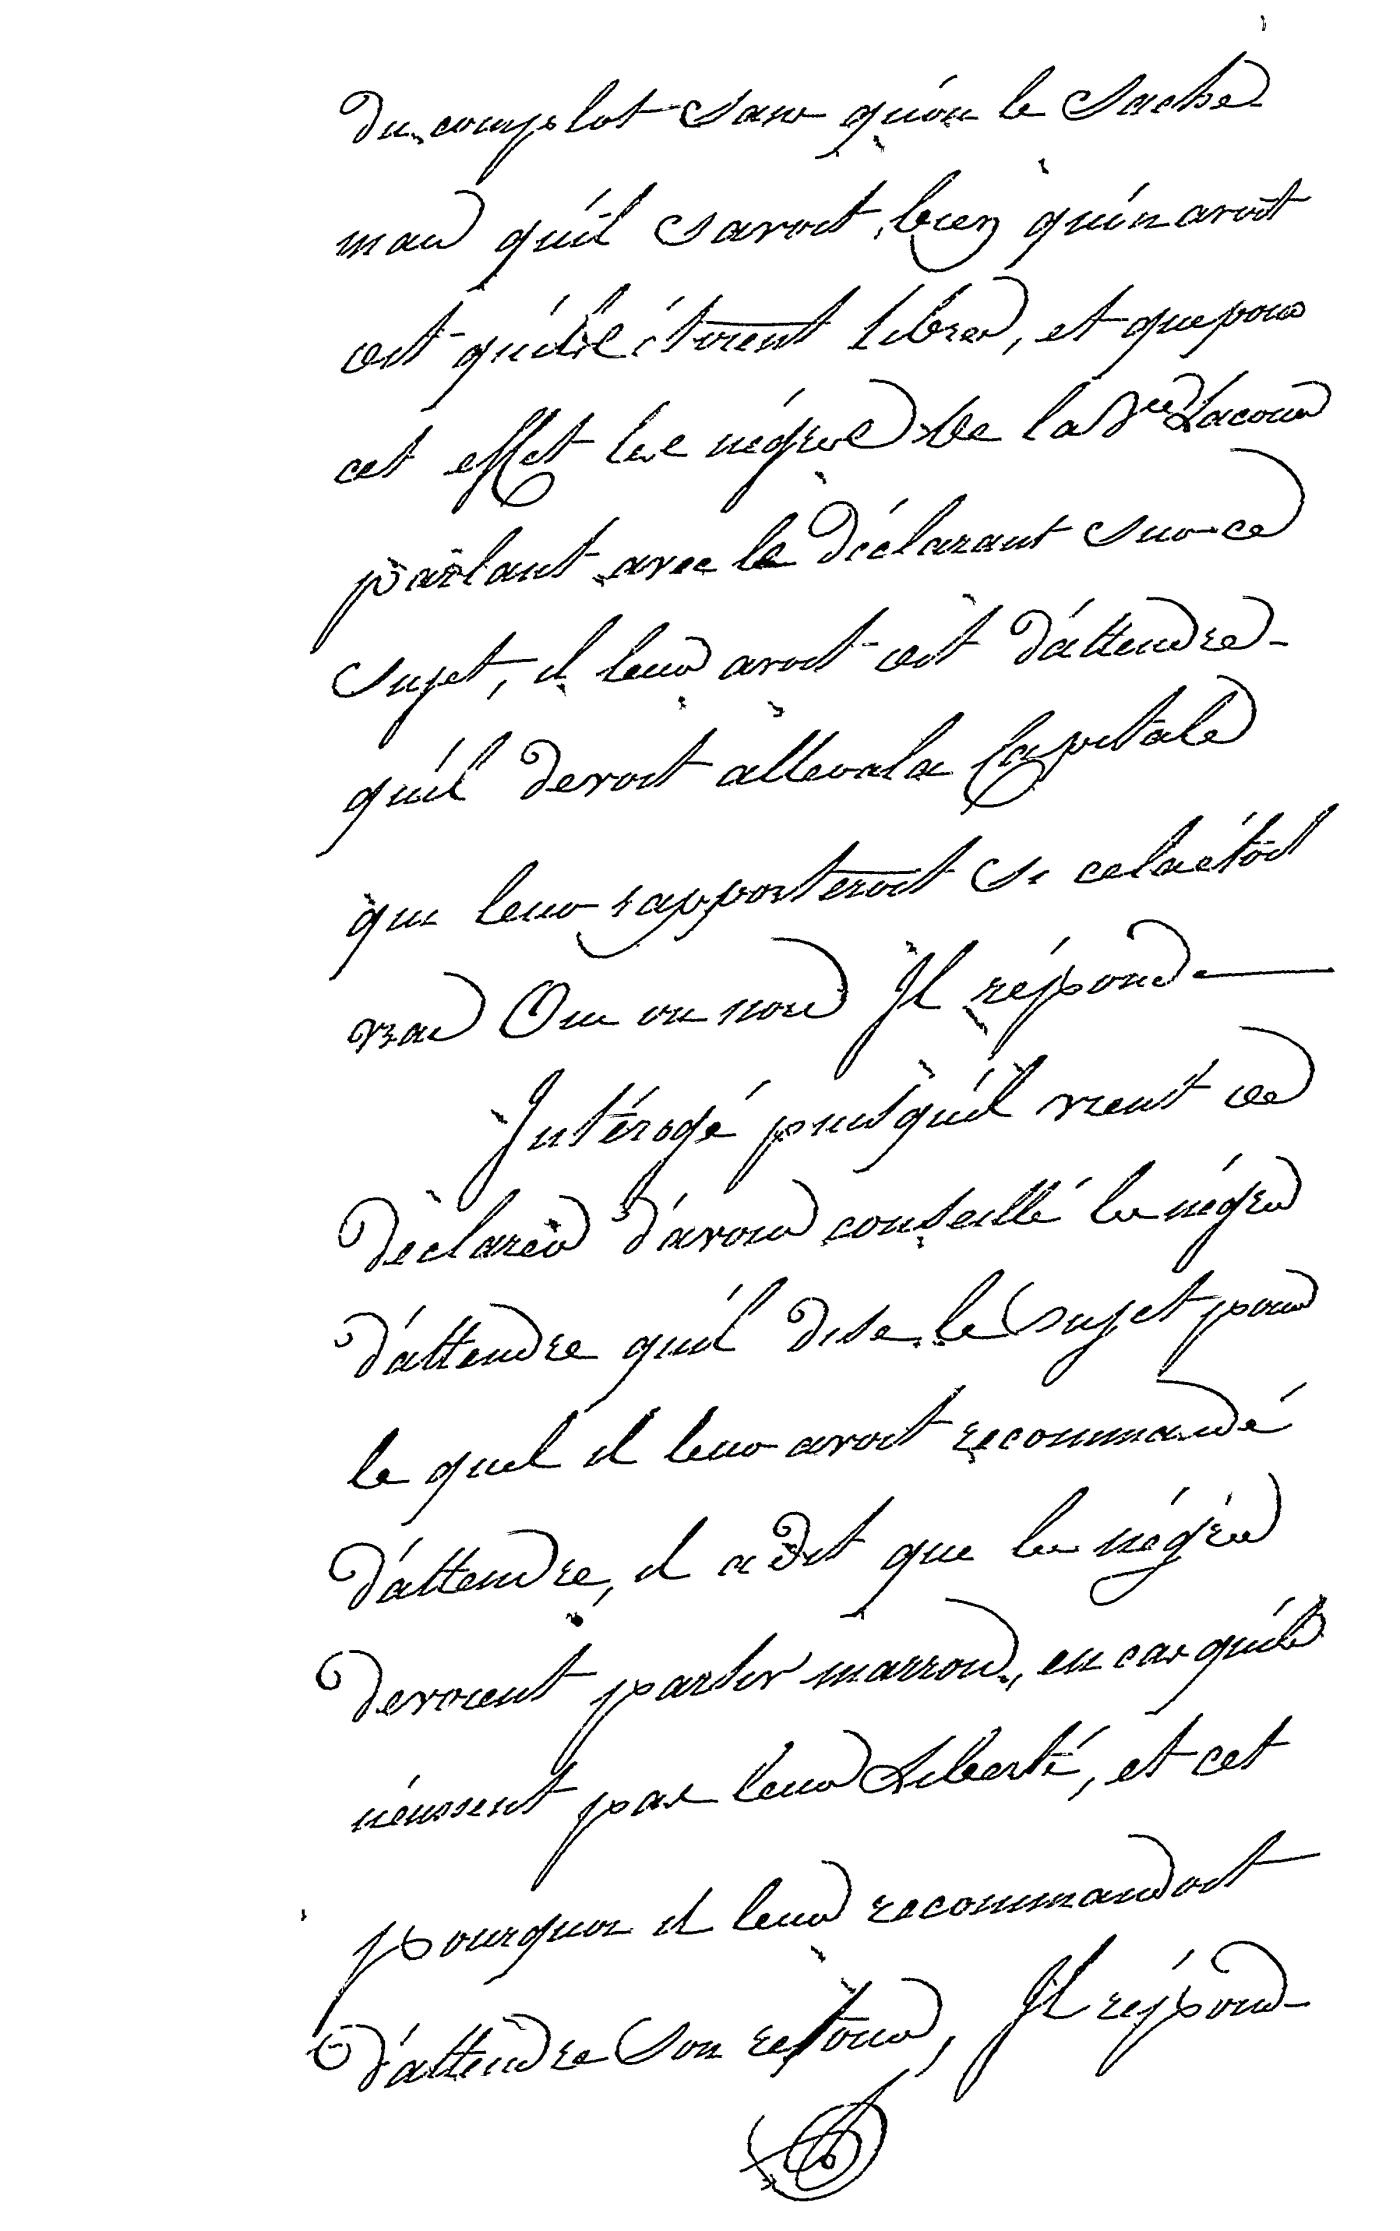 du complot sans qu'on le sache
mais qu'il savoit bien qu'on avoit
dit qu'ils étoient libres, et que pour
cet effet les négres de la V.ve Lacour
parlant avec le déclarant sur ce
sujet, il leur avoit dit d'attendre
qu'il devoit aller a la Capitale
qui leur rapporteroit si cela étoit
vrai Oui ou non Il répond
Intérogé puisqu'il vient de
déclarer d'avoir conseillé les négres
d'attendre qu'il dise le sujet pour
le quel il leur avoit recommandé
d'attendre, il a dit que les négres
devoient partir marrons, en cas qu'ils
n'eussent pas leur Liberté, et cet
pourquoi il leur recommandoit
d'attendre son retour, Il répond